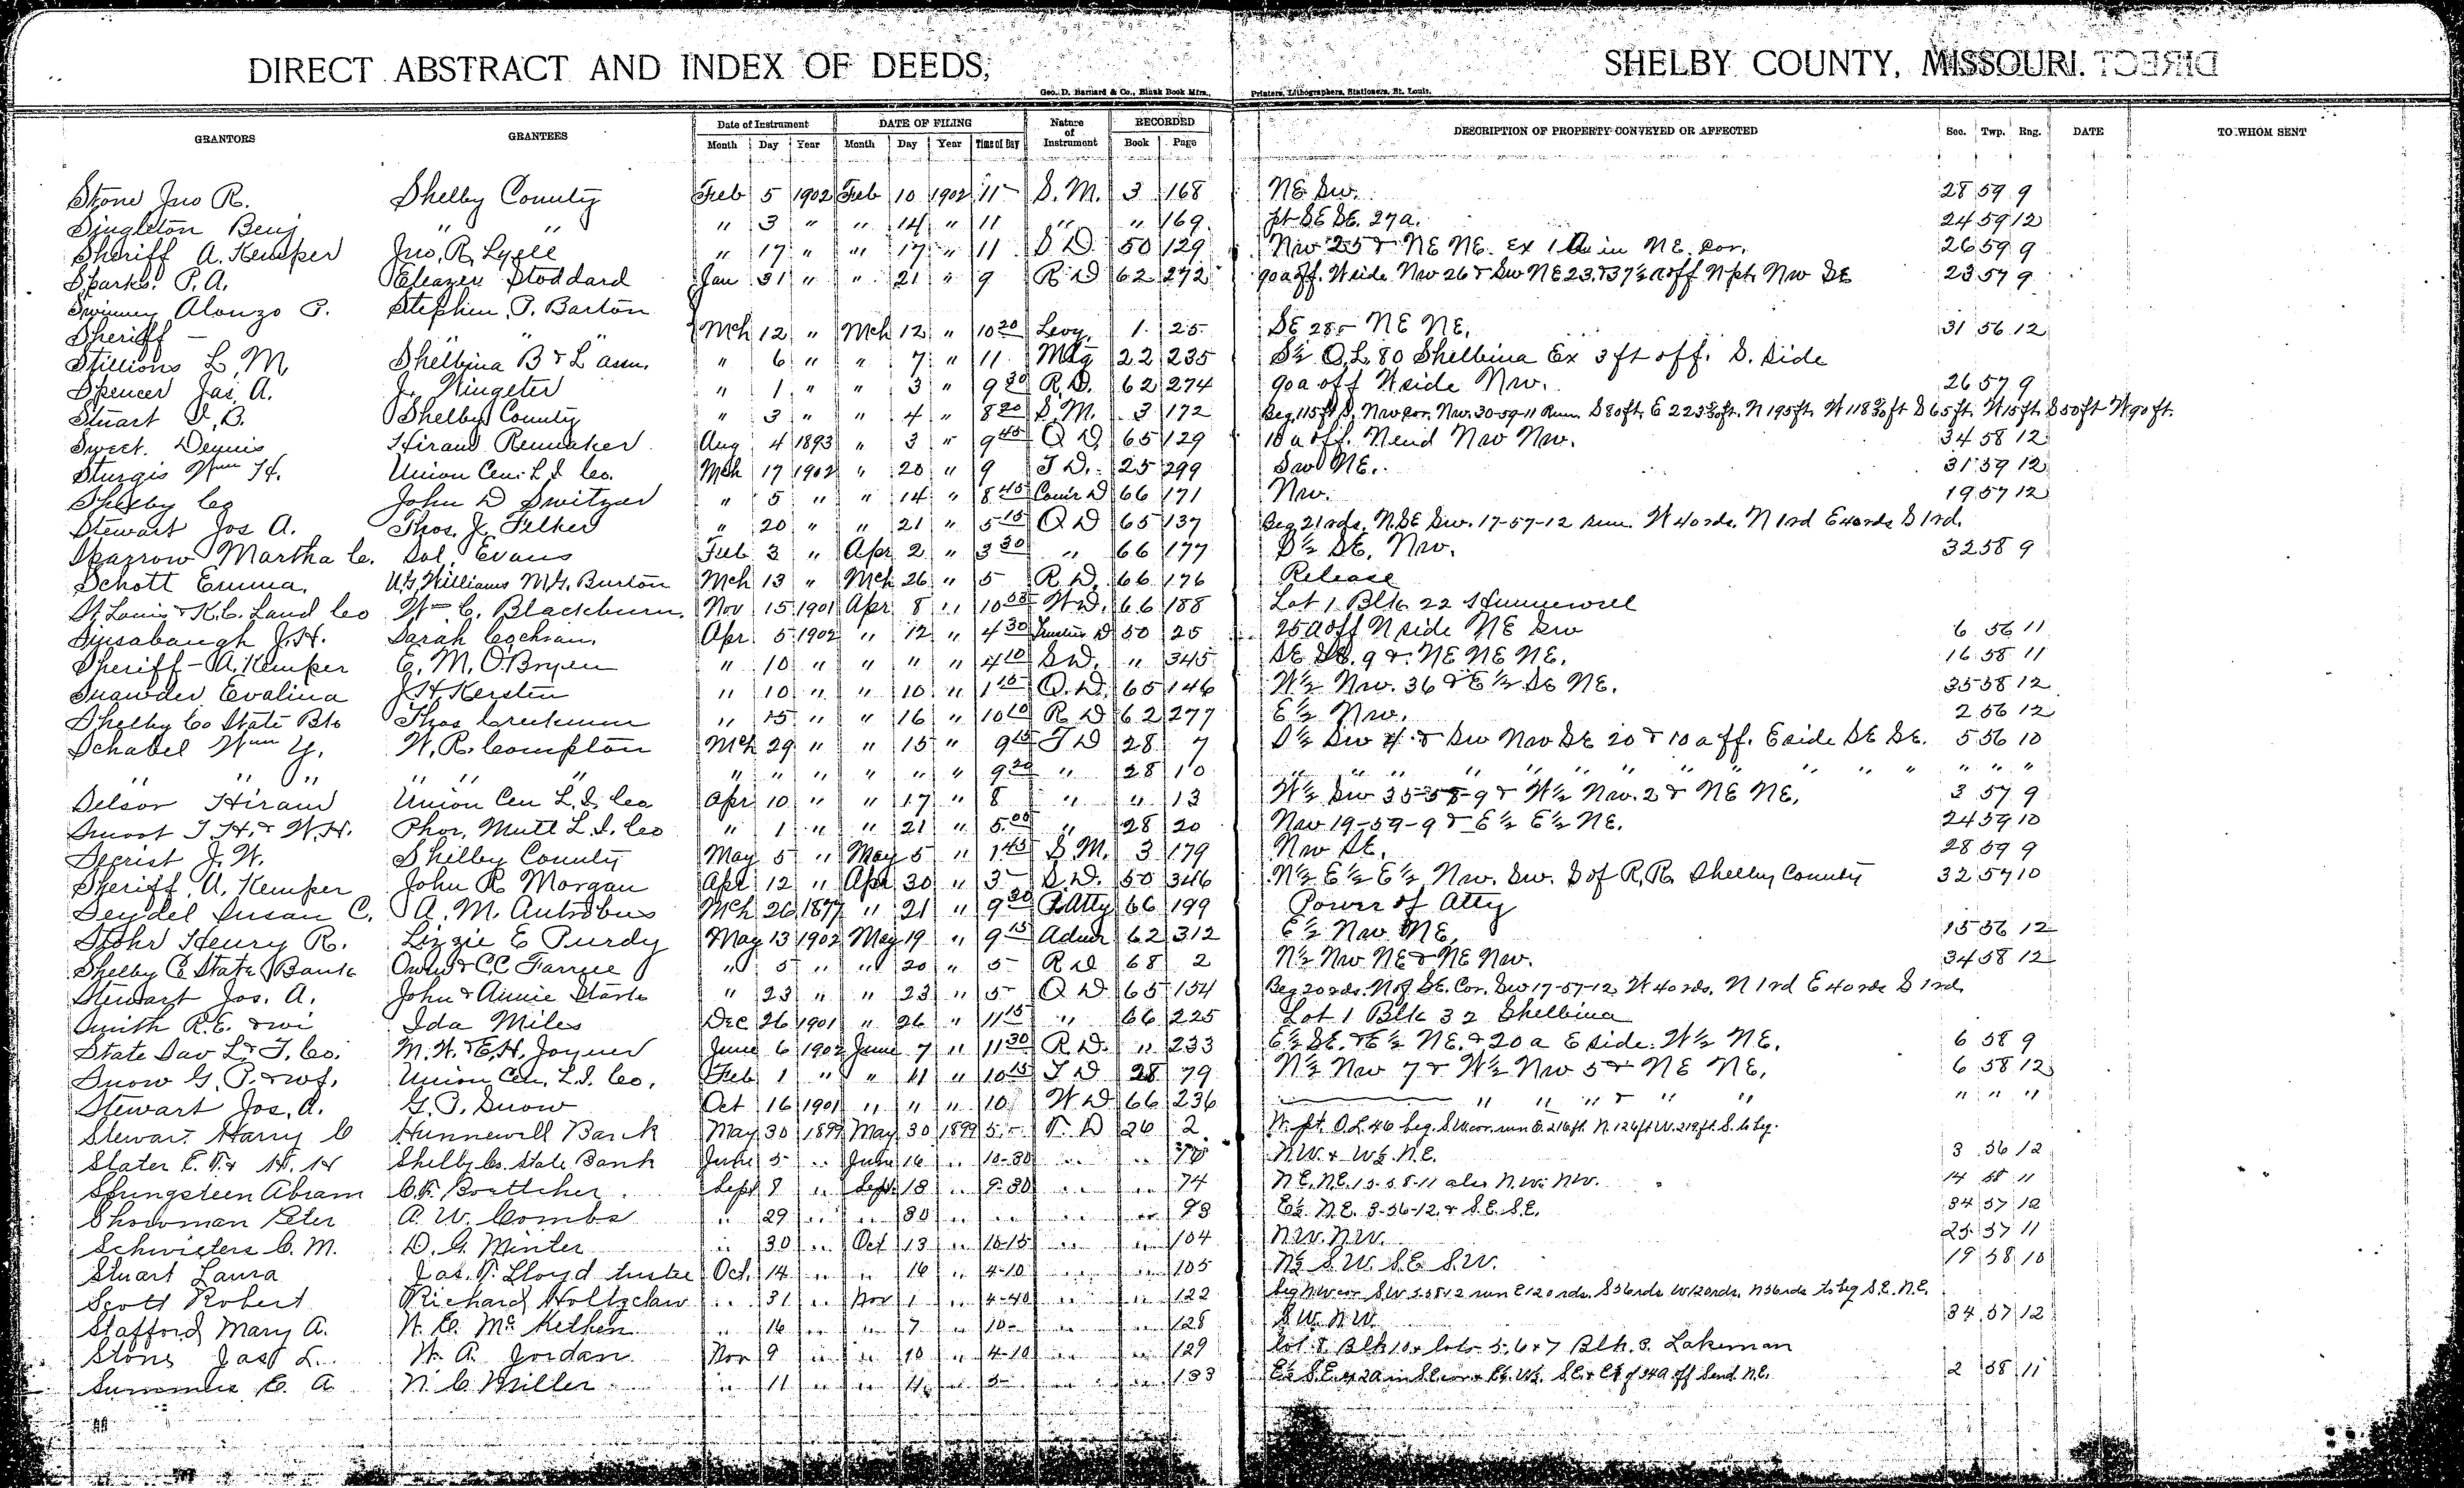 DIRECT ABSTRACT AND INDEX OF DEEDS, SHELBY COUNTY, MISSOURI.
Geo. D. Barnard & Co., Blank Book Mfrs., Printers, Lithographers, Stationers, St. Louis.
GRANTORS GRANTEES Date of Instrument DATE OF FILING Nature of Instrument RECORDED DESCRIPTION OF PROPERTY CONVEYED OR AFFECTED Sec. Twp. Rng. DATE TO WHOM SENT
Month Day Year Month Day Year Time of Day Book Page
Stone Jno R. Shelby County Feb 5 1902 Feb 10 1902 11 S. M. 3 168 NE Sw. 28 59 9
Singleton Benj " " " 3 " " 14 " 11 " " 169 pt SE SE. 27a. 24 59 12
Sheriff A. Kemper Jno. R. Lyell " 17 " " 17 " 11 S D 50 129 Nw 25 & NE NE. Ex 1 a in NE cor. 26 59 9
Sparks P. A. Eleazer Stoddard Jan 31 " " 21 " 9 R D 62 272 90a off. W side Nw 26 & Sw NE 23. & 37½ a off N pt. Nw SE 23 57 9
Swinney Alonzo P. Stephen P. Barton
Sheriff — " " Mch 12 " Mch 12 " 10 20 Levy 1 25 SE 28 NE NE. 31 56 12
Stillions L. M. Shelbina B & L assn. " 6 " " 7 " 11 Mtg 22 235 S½ O.L. 80 Shelbina Ex 3 ft off. S. side
Spencer Jas. A. J. Wingeter " 1 " " 3 " 9 30 R. D. 62 274 90a off W side Nw. 26 57 9
Stuart Shelby County " 3 " " 4 " 8 20 S. M. 3 172 Beg. 115 ft S. Nw cor. Nw. 30-59-11 Run. S 80 ft. E N 195 ft. W S 65 ft. W 15 ft. S 50 ft W 90 ft.
Sweet. Dennis Hiram Renmaker Aug 4 1893 " 3 " 9 45 Q D 65 129 10 a off. N end Nw Nw. 34 58 12
Sturgis Wm H. Union Cen. L. I. Co. Mch 17 1902 " 20 " 9 T D. 25 299 Sw NE. 31 59 12
Shelby Co John D Switzer " 5 " " 14 " 8 45 Com'r D 66 171 Nw. 19 57 12
Stewart Jos A. Thos. J. Felker " 20 " " 21 " 5 15 Q D 65 137 Beg 21 rds. N. SE Sw. 17-57-12 run. W 40 rds. N 1 rd E 40 rds S 1 rd.
Sparrow Martha C. Sol. Evans Feb 3 " Apr 2 " 3 30 " 66 177 S½ SE. Nw. 32 58 9
Schott Emma. U.G. Williams M.G. Burton Mch 13 " Mch 26 " 5 R D. 66 176 Release
St Louis & K.C. Land Co Wm C. Blackburn. Nov 15 1901 Apr 8 " 10 05 W D. 66 188 Lot 1 Blk 22 Hunnewell
Sinsabaugh J. H. Sarah Cochran. Apr 5 1902 " 12 " 4 30 Trustees D 50 25 25 a off N side NE Sw 6 56 11
Sheriff - A. Kemper E. M. O'Bryen " 10 " " " " 4 10 S D. " 345 SE SE. 9 & NE NE NE. 16 58 11
Snawder Evalina J H Kersten " 10 " " 10 " 1 15 Q. D. 65 146 W½ Nw. 36 & E½ SE NE. 35 58 12
Shelby Co State Bk Thos Creekmur " 15 " " 16 " 10 10 R D 62 277 E½ Nw. 2 56 12
Schabel Wm Y. W. R. Compton Mch 29 " " 15 " 9 15 T D 28 7 S½ Sw 4 & Sw Nw SE 20 & 10 a off. E side SE SE. 5 56 10
" " " " " " " " " " " " 9 20 " 28 10 " " " " " " " " " " " " " " "
Selsor Hiram Union Cen L. I. Co Apr 10 " " 17 " 8 " " 13 W½ Sw 35-58-9 & W½ Nw. 2 & NE NE. 3 57 9
Smoot T H. & W. H. Phoe. Mutl L. I. Co " 1 " " 21 " 5 00 " 28 20 Nw 19-59-9 & E½ E½ NE. 24 59 10
Segrist J. W. Shelby County May 5 " May 5 " 1 45 S. M. 3 179 Nw SE. 28 59 9
Sheriff, A. Kemper John R Morgan Apr 12 " Apr 30 " 3 S. D. 50 346 N½ E½ E½ Nw. Sw. S of R. R. Shelby County 32 57 10
Seydel Susan C. A. M. Antrobus Mch 26 1877 " 21 " 9 30 P. Atty 66 199 Power of Atty
Stohr Henry R. Lizzie E Purdy May 13 1902 May 19 " 9 15 Admr 62 312 E½ Nw NE. 15 56 12
Shelby C. State Bank Owen & C C Farrell " 5 " " 20 " 5 R D 68 2 N½ Nw NE & NE Nw. 34 58 12
Stewart Jos. A. John & Annie Stark " 23 " " 23 " 5 Q D 65 154 Beg 20 rds. N of SE. Cor. Sw 17-57-12, W 40 rds. N 1 rd E 40 rds S 1 rd.
Smith R. E. & wi Ida Miles Dec 26 1901 " 26 " 11 15 " 66 225 Lot 1 Blk 32 Shelbina
State Sav L & T. Co. M. W. & E. H. Joyner June 6 1902 June 7 " 11 30 R D. " 233 E½ SE. & E½ NE. & 20 a E side. W½ NE. 6 58 9
Snow G. P. & wf. Union Cen. L. I. Co. Feb 1 " " 11 " 10 15 T D 28 79 N½ Nw 7 & W½ Nw 5 & NE NE. 6 58 12
Stewart Jos. A. G. P. Snow Oct 16 1901 " " " 10 W D 66 236 " " " & " " " " "
Stewart Harry C Hunnewell Bank May 30 1899 May 30 1899 5 T. D 26 2 N. pt. O.L. 46 beg. S.W. cor. run E. 216 ft. N. 126 ft W. 219 ft. S. to beg.
Slater E. T. & H. H Shelby Co. State Bank June 5 " June 16 " 10-30 " " N.W. & W½. N.E. 3 56 12
Springsteen Abram C. F. Boettcher Sept 9 " Sept. 18 " 9-30 " " 74 N.E. N.E. 15-58-11 also N.W. NW. 14 58 11
Showman Peter A. W. Combs " 29 " " 30 " " " " 93 E½ N.E. 3-56-12. & S.E. S.E. 34 57 12
Schwieters C. M. D. G. Minter " 30 " Oct 13 " 10-15 " " 104 N.W. N.W. 25 57 11
Stuart Laura Jas. T. Lloyd trustee Oct. 14 " " 16 " 4-10 " " 105 N½ S.W. S.E. S.W. 19 58 10
Scott Robert Richard Holtzclaw " 31 " Nov 1 " 4-40 " " 122 beg N W cor S.W. 3-58-12 run E 120 rds. S 56 rds W 120 rds. N 56 rds to beg S.E. N.E.
Stafford Mary A. W. C. McKethen " 16 " " 7 " 10 " " 128 S.W. N.W. 34 57 12
Stone Jas L. W. A. Jordan Nov 9 " " 10 " 4-10 " " 129 lot 8 Blk 10 & lots 5. 6 & 7 Blk. 3. Lakenan
Summers C. A. N. C. Miller " 11 " " 11 " 5 " " 133 E½ S.E. 2 58 11